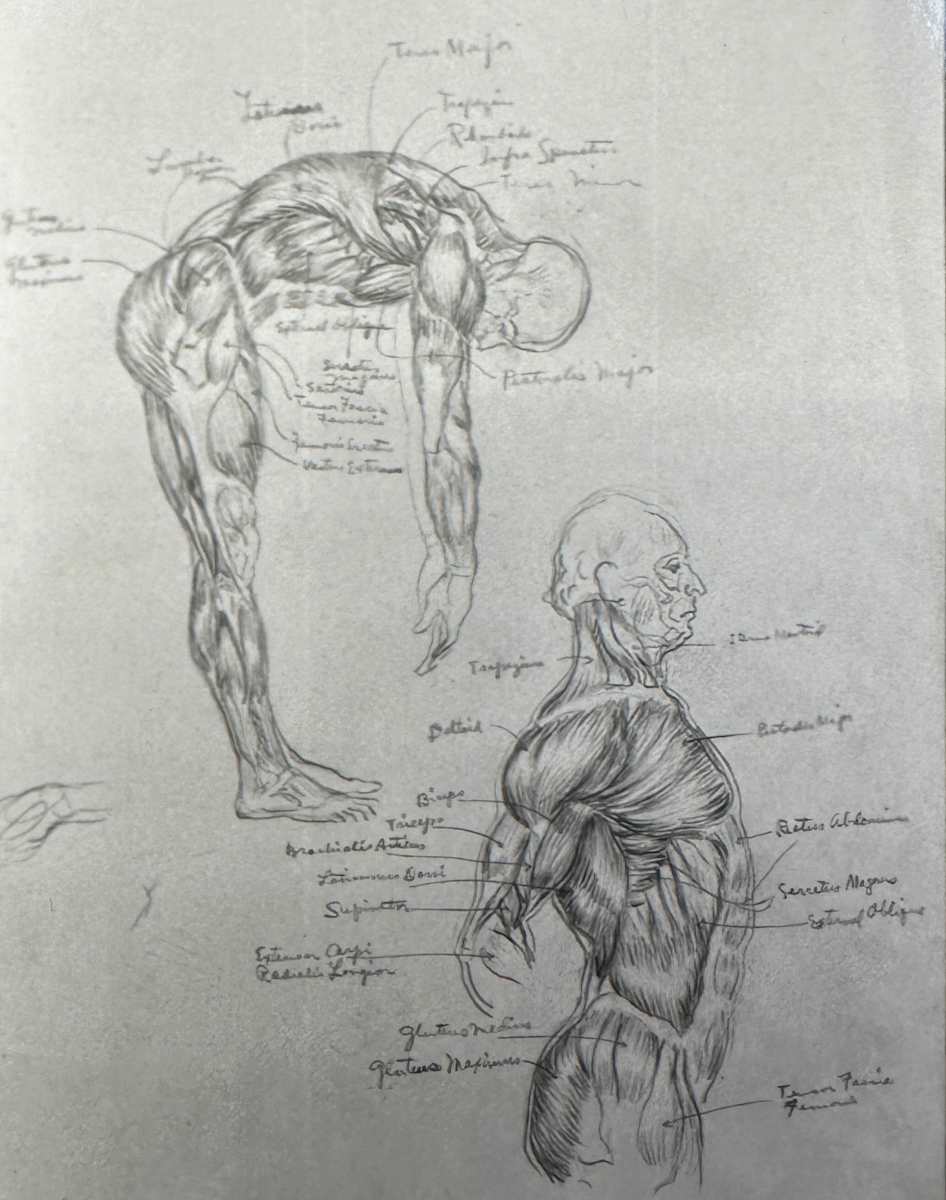 Teres Major
Trapezius
Latissimus
Dorsi
Rhomboid
Infra Spinatus
Teres Minor
Lumbo
Gluteus
Medius
Gluteus
Maximus
External Oblique
Serratus
Magnus
Sartorius
Tensor Fascia
Femoris
Pectoralis Major
Vastus Externus
Sterno Mastoid
Trapezius
Deltoid
Pectoralis Major
Biceps
Triceps
Rectus Abdominis
Brachialis Anticus
Latissimus Dorsi
Serratus Magnus
Supinator
External Oblique
Extensor Carpi
Radialis Longior
Gluteus Medius
Gluteus Maximus
Tensor Fascia
Femoris